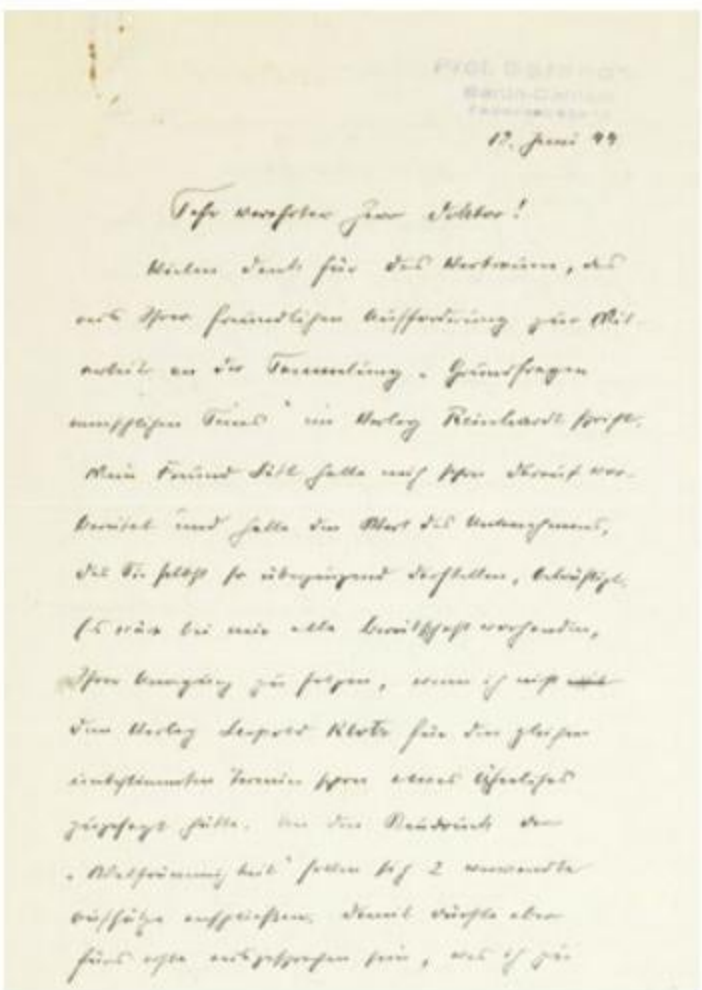 Prof. Spranger
Berlin-Dahlem
17. Juni 44
Sehr verehrter Herr Doktor!
Vielen Dank für das Vertrauen, das
aus Ihrer freundlichen Aufforderung zur Mit-
arbeit an der Sammlung „Grundfragen
menschlichen Seins" im Verlag Reinhardt spricht.
Mein Freund Litt hatte mich schon darauf vor-
bereitet und hatte den Wert des Unternehmens,
das Sie selbst so überzeugend darstellen, bekräftigt.
Es wäre bei mir alle Bereitschaft vorhanden,
Ihrer Anregung zu folgen, wenn ich nicht
dem Verlag Leopold Klotz für den gleichen
unbestimmten Termin schon etwas Ähnliches
zugesagt hätte. An den Neudruck der
„Weltfrömmigkeit" sollen sich 2 verwandte
Aufsätze anschließen. Damit dürfte aber
fürs erste ausgesprochen sein, was ich zu